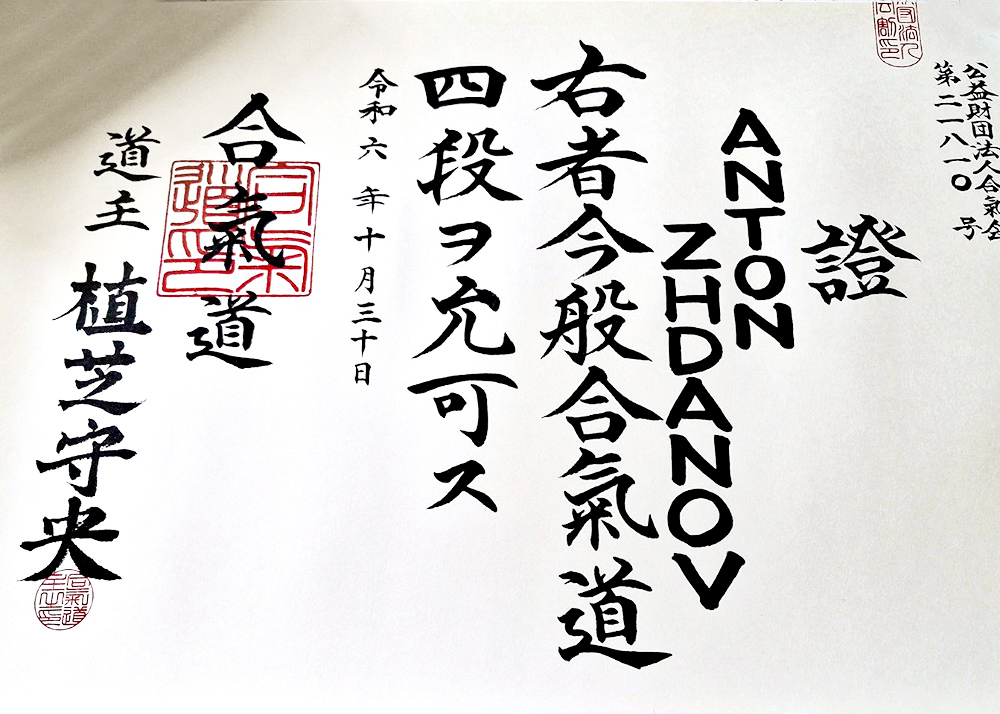 公益財団法人合氣会
第二一八一〇号
證
ANTON
ZHDANOV
右者今般合氣道
四段ヲ允可ス
令和六年十月三十日
合氣道
道主 植芝守央